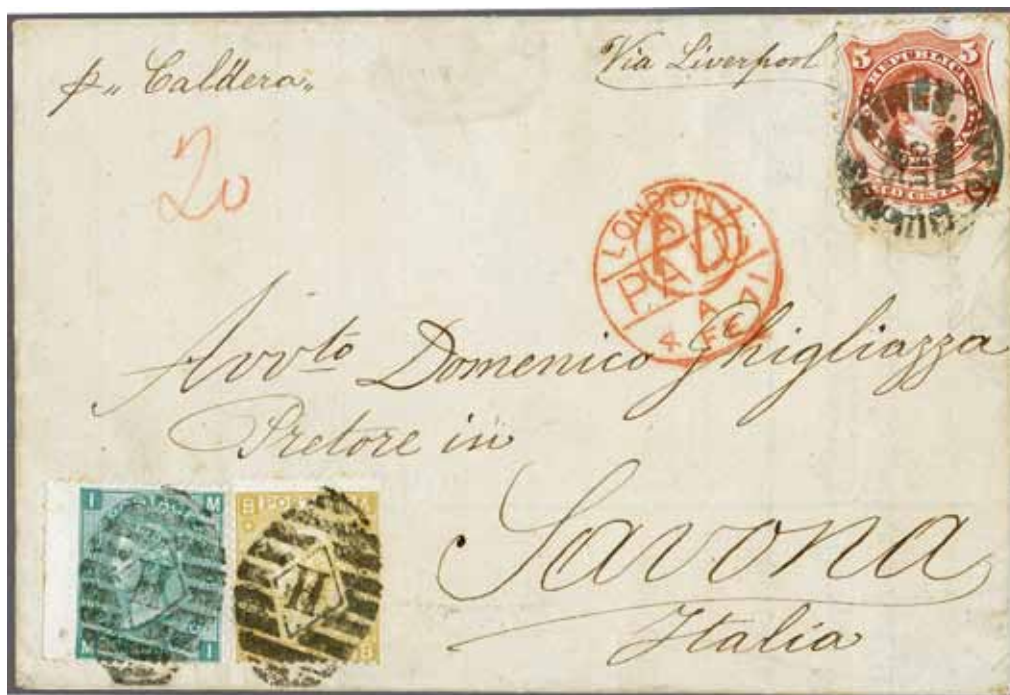 p" Caldera"
Via Liverpool
20
5 REPUBLICA 5
LONDON
PD
PAID
A
4 FE 71
Avv.to Domenico Ghigliazza
Pretore in
Savona
Italia
I M
M I
B
B